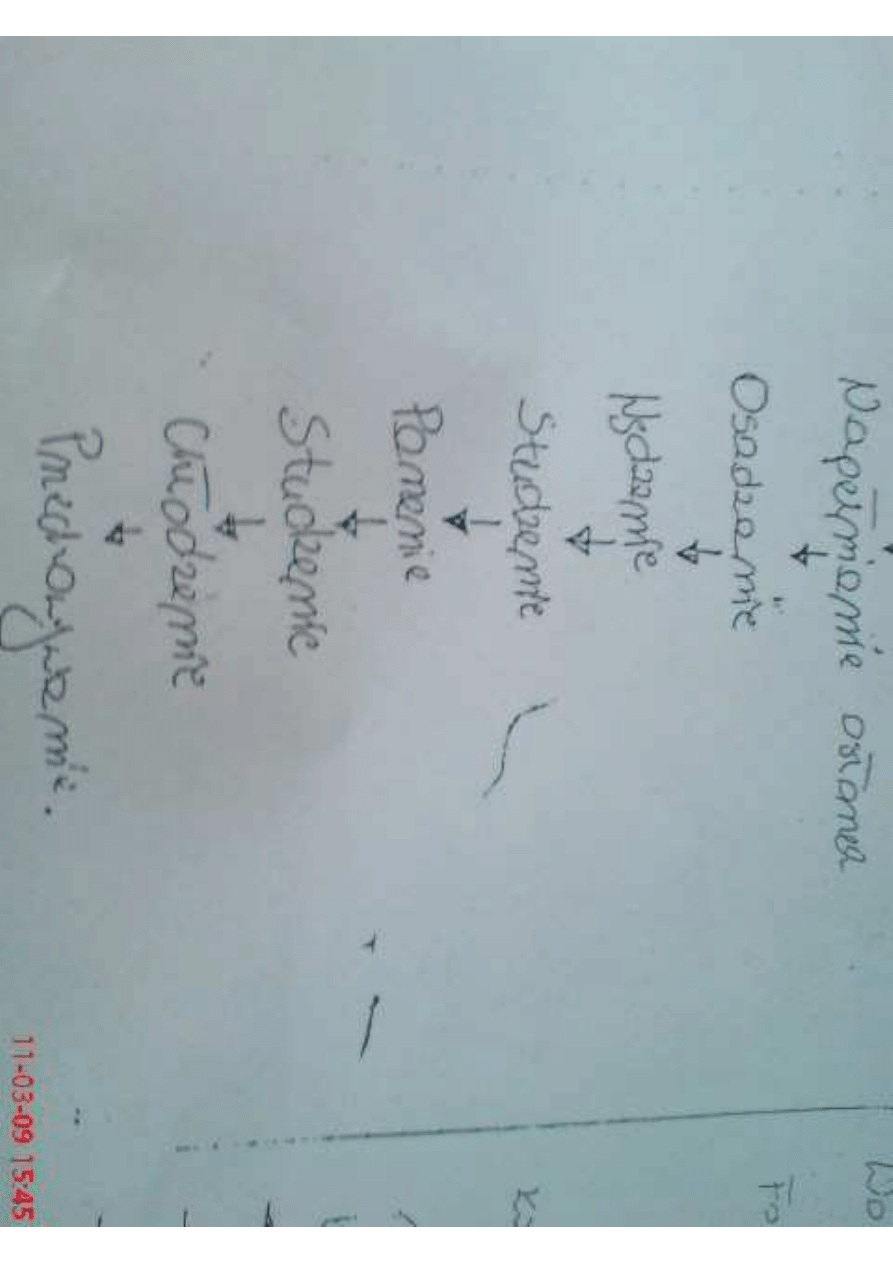 Napełnianie osłonek
Osadzanie
Wędzenie
Studzenie
Parzenie
Studzenie
Chłodzenie
Przechowywanie.
Wo
11-03-09 15:45